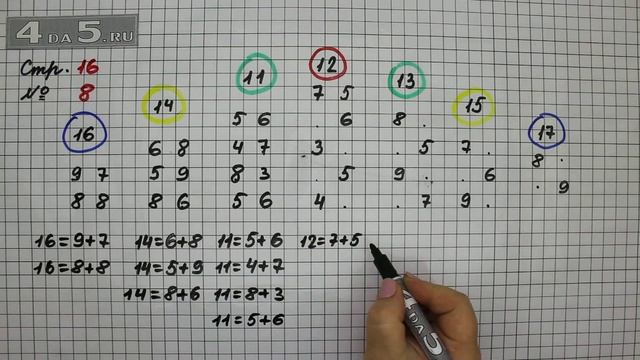 4 DA 5.RU
Стр. 16
№ 8
16
9 7
8 8
14
6 8
5 9
8 6
11
5 6
4 7
8 3
5 6
12
7 5
. 6
3 .
. 5
4 .
13
8 .
. 5
9 .
. 7
15
7 .
. 6
9 .
17
8 .
. 9
16=9+7 14=6+8 11=5+6 12=7+5
16=8+8 14=5+9 11=4+7
14=8+6 11=8+3
11=5+6
4 DA 5